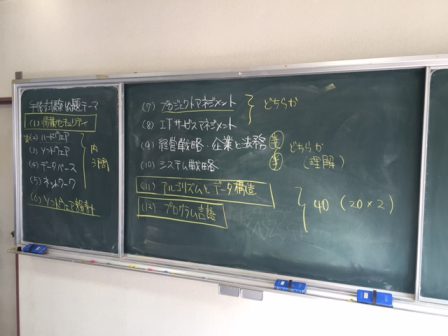 午後試験出題テーマ
(1) 情報セキュリティ
(2) ハードウェア
(3) ソフトウェア
(4) データベース
(5) ネットワーク
(6) ソフトウェア設計
内
3問
(7) プロジェクトマネジメント
(8) ITサービスマネジメント
どちらか
(9) 経営戦略・企業と法務
(10) システム戦略
どちらか
(理解)
(11) アルゴリズムとデータ構造
(12) プログラム言語
40 (20×2)